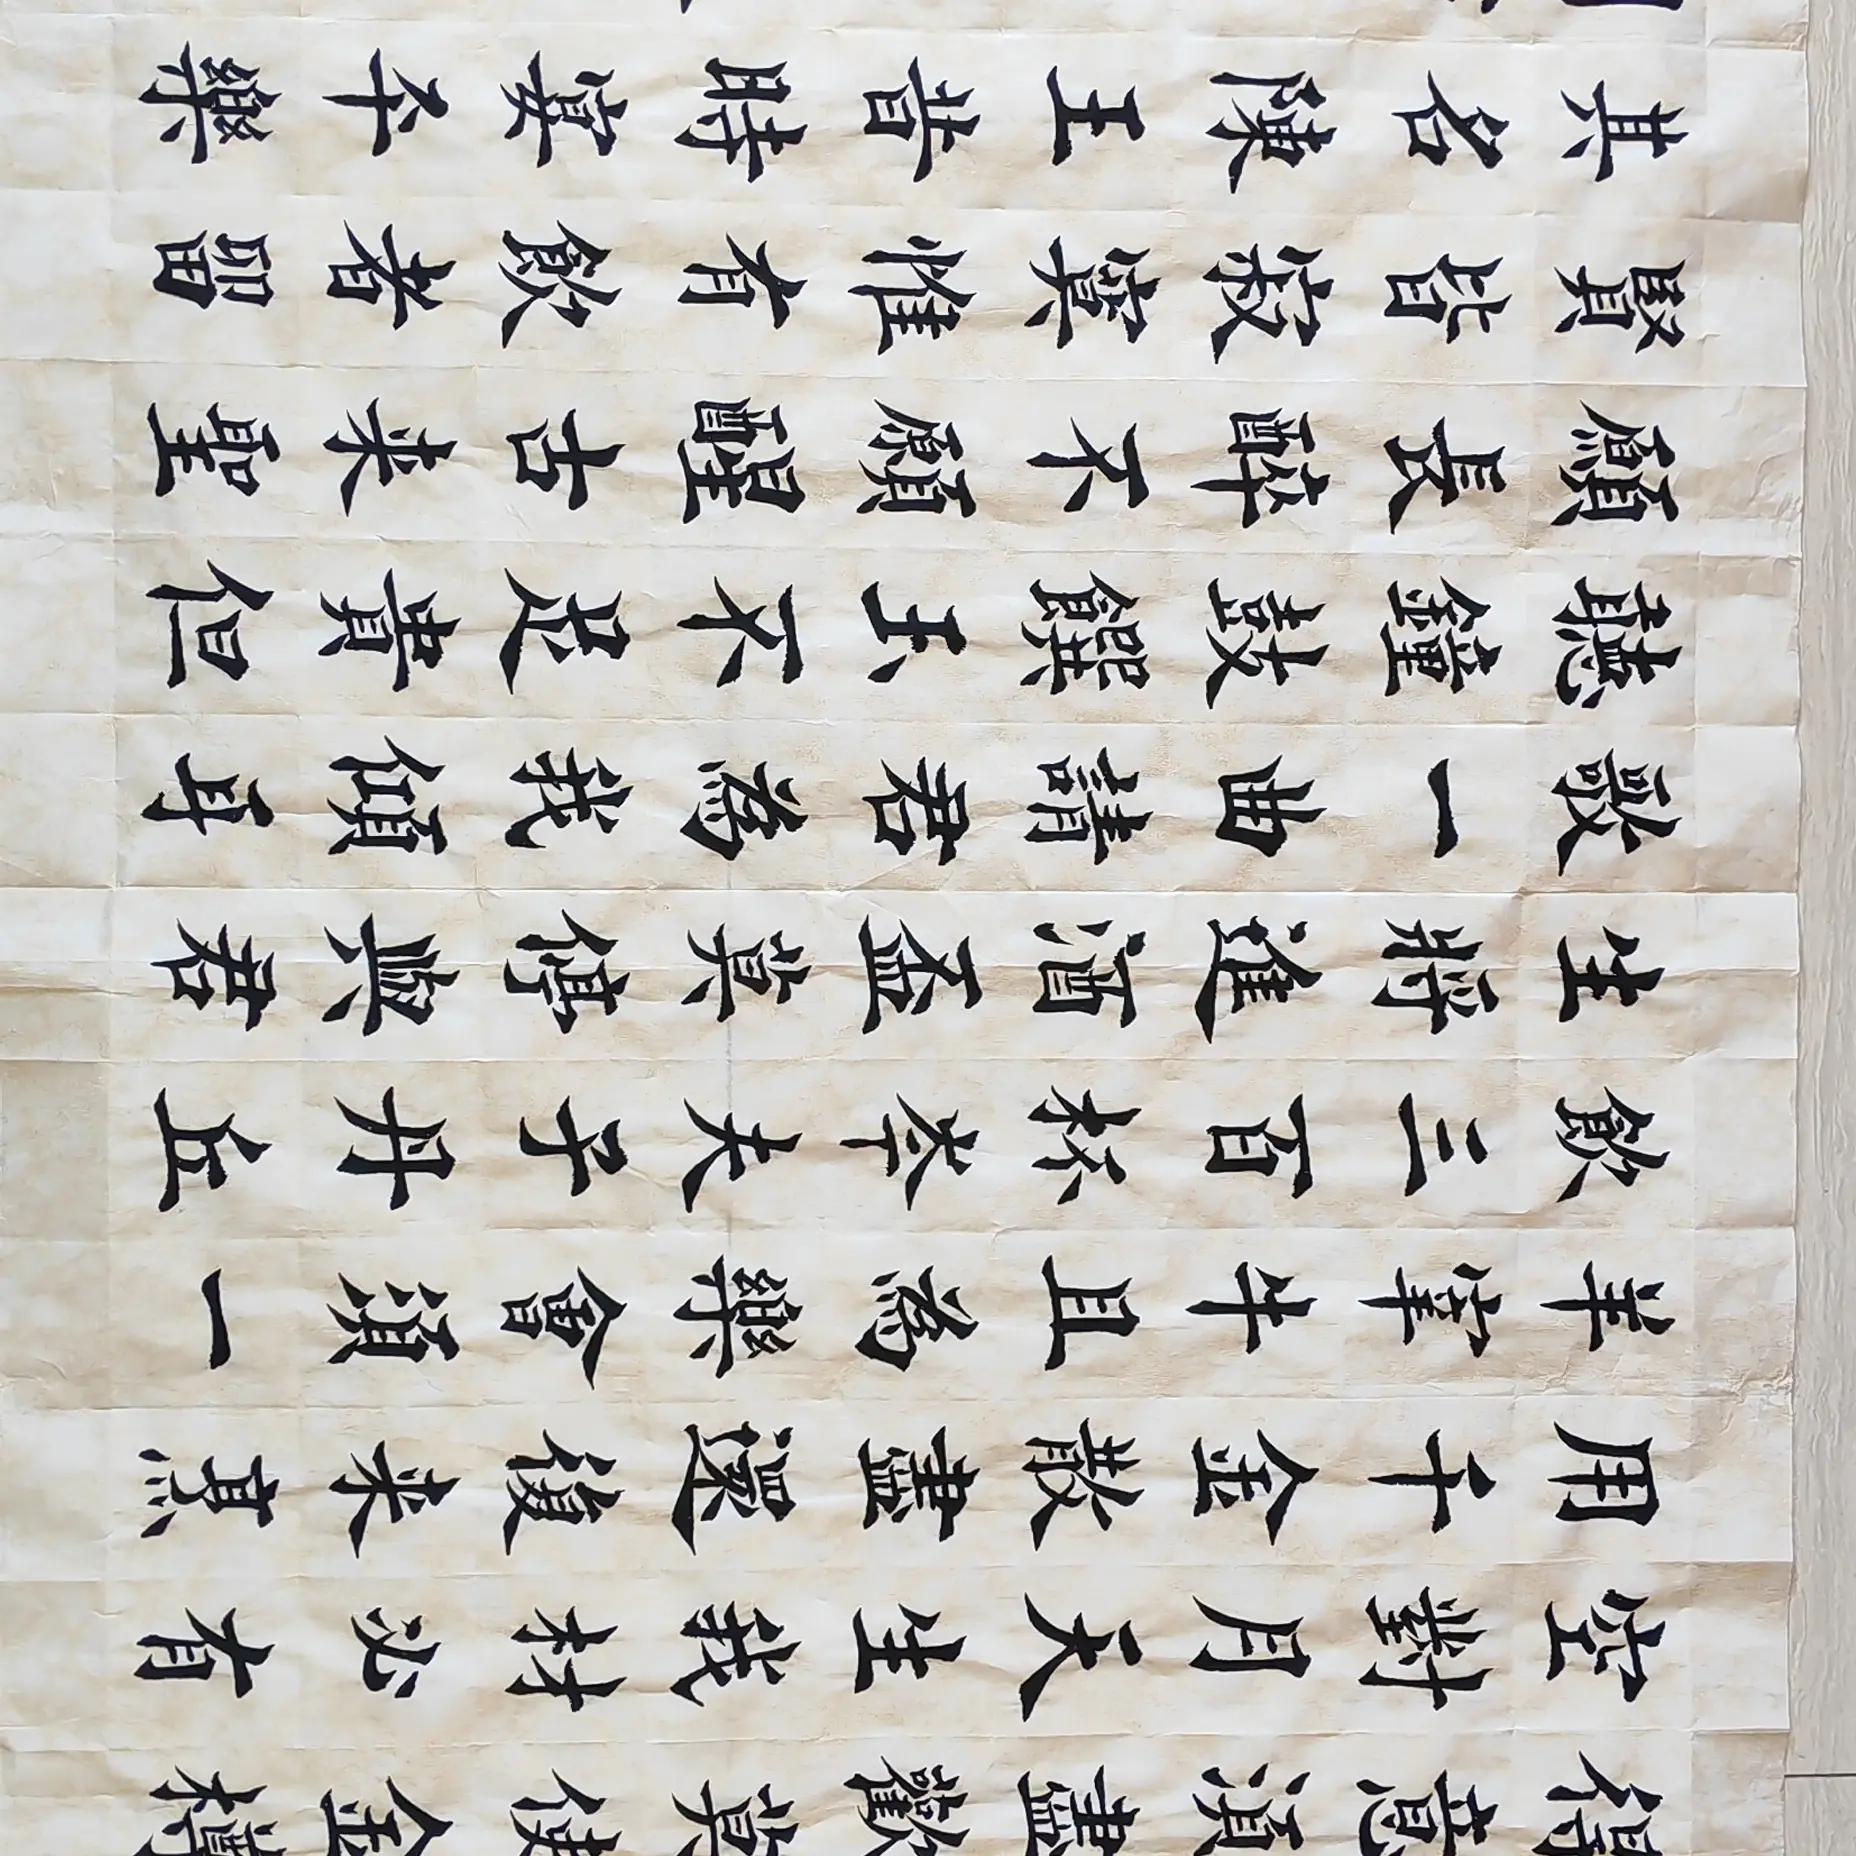 得意須盡歡莫使金樽
空對月天生我材必有
用千金散盡還復来烹
羊宰牛且為樂會須一
飲三百杯岑夫子丹丘
生將進酒盃莫停與君
歌一曲請君為我傾耳
聽鐘鼓饌玉不足貴但
願長醉不願醒古来聖
賢皆寂寞惟有飲者留
其名陳王昔時宴平樂